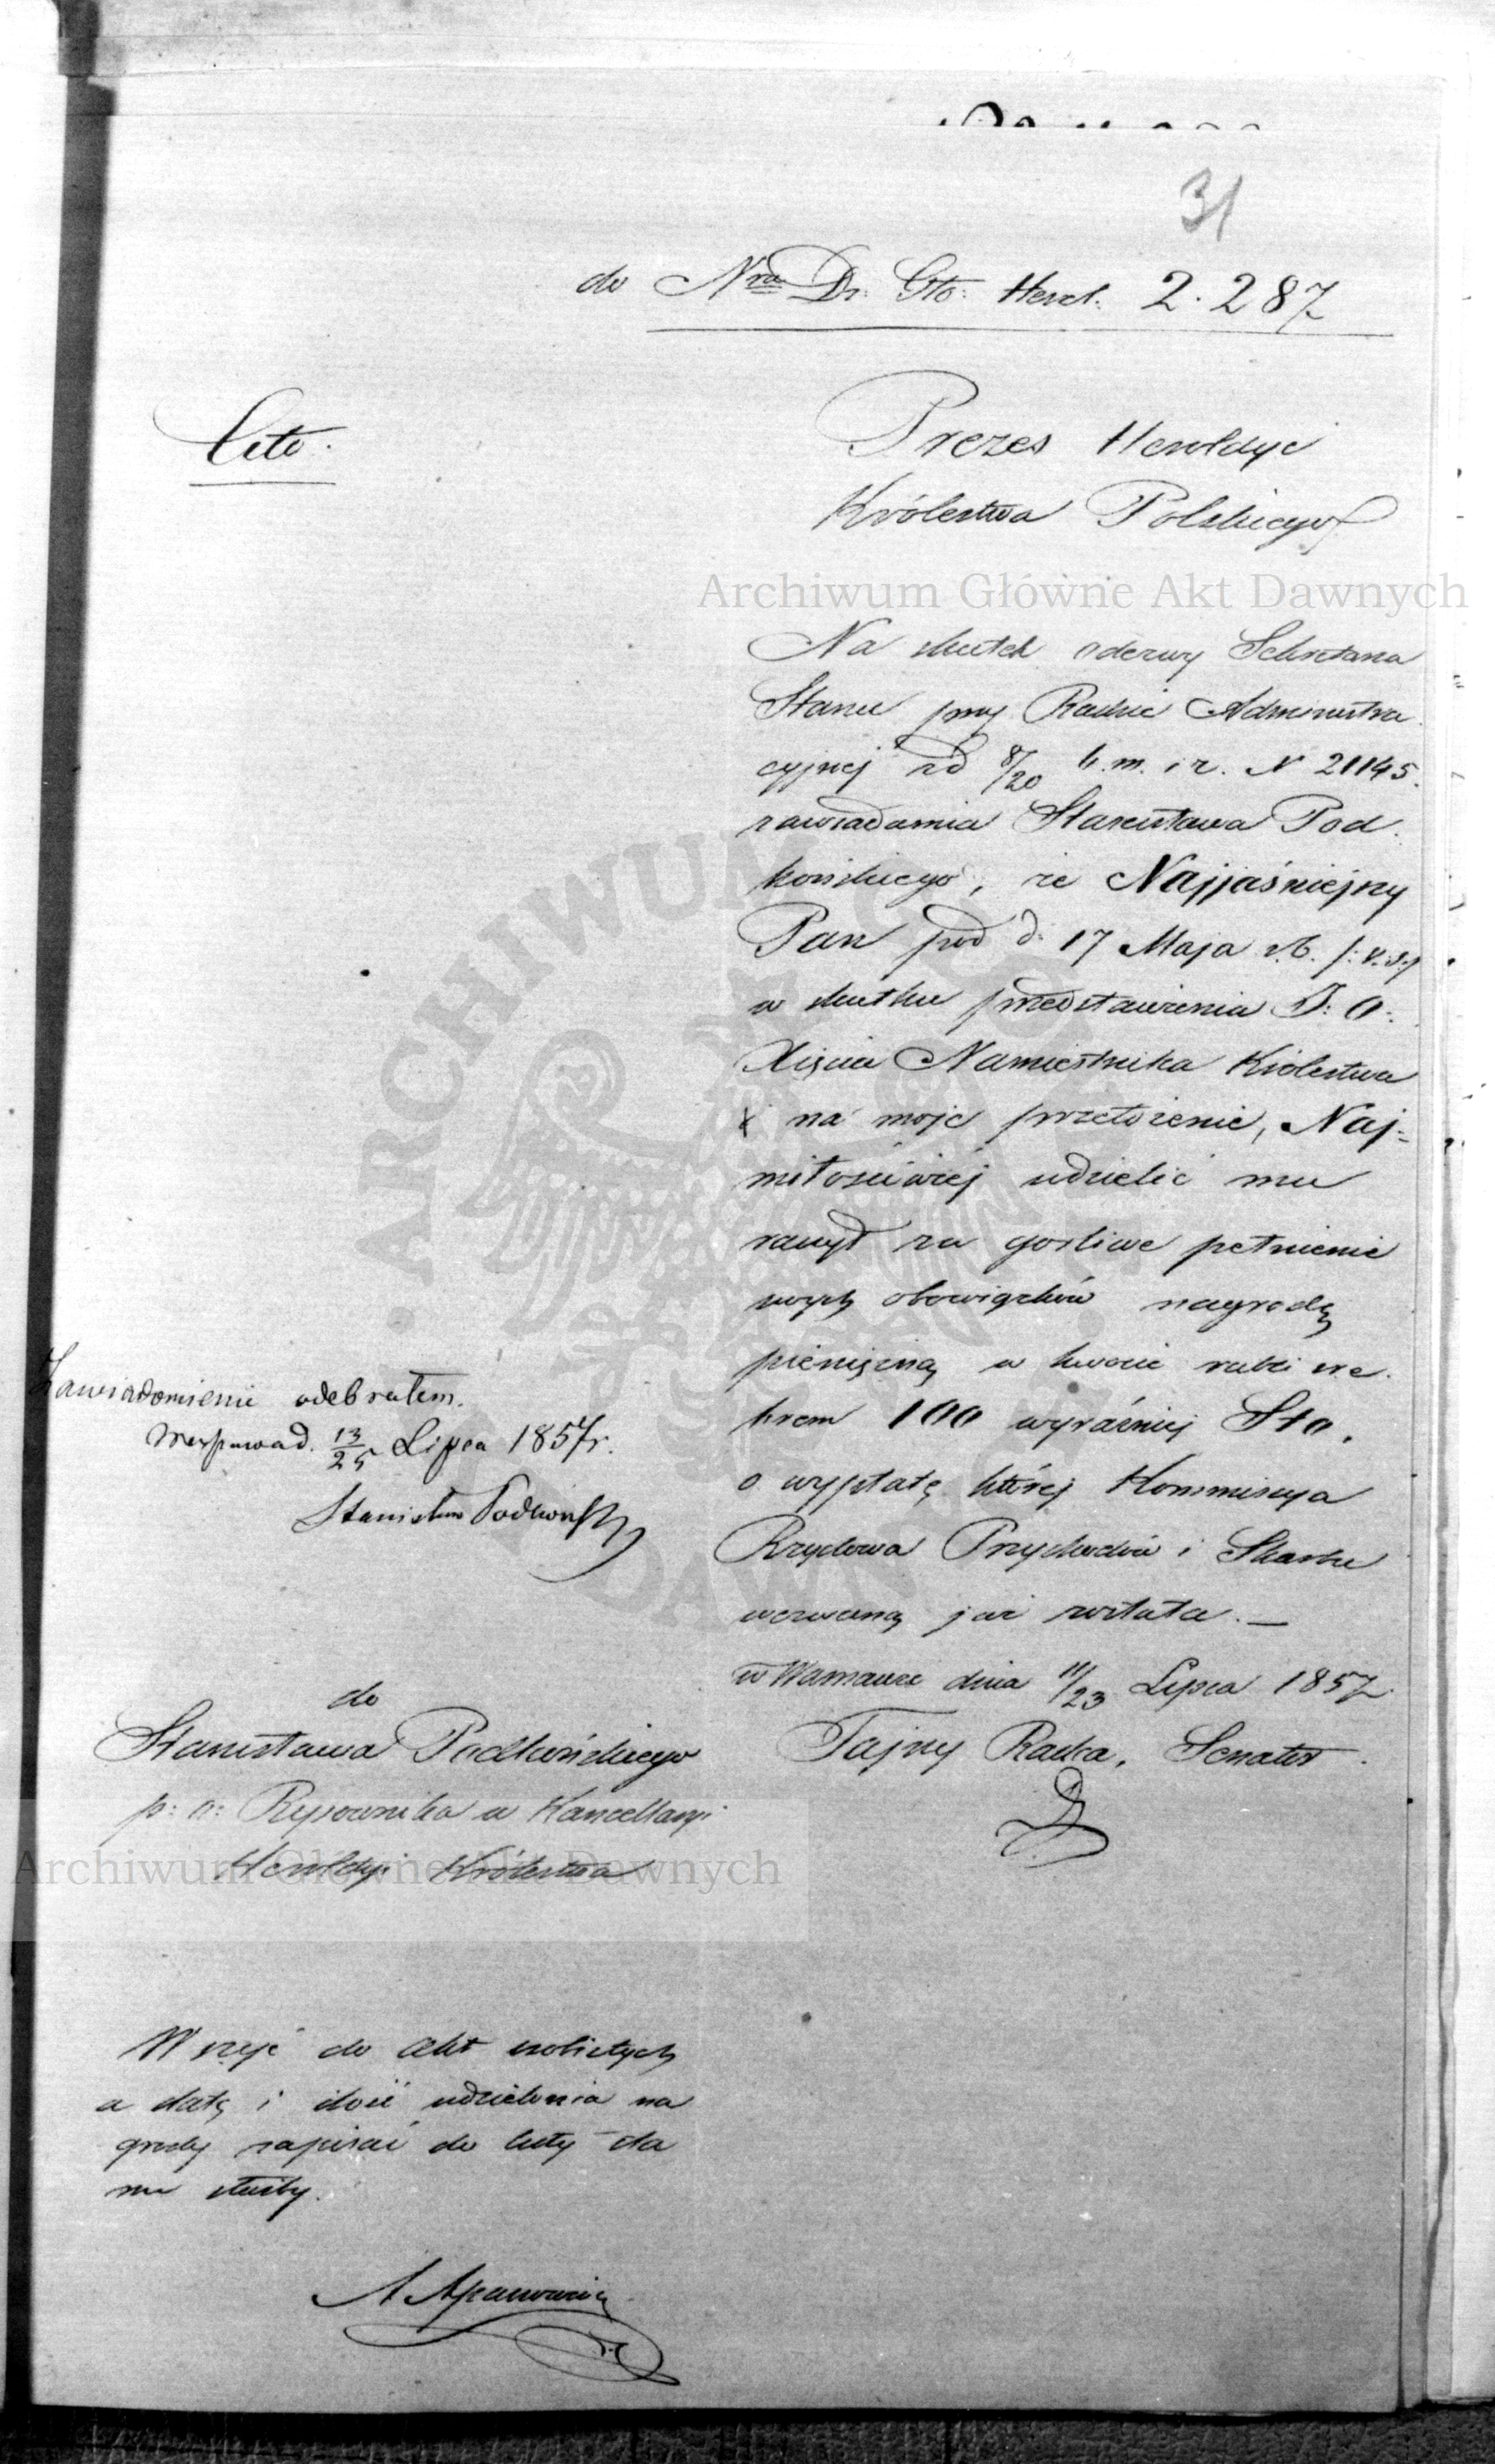 31
do Nra Dz: Gło: Herol: 2.287
Cito.
Prezes Heroldyi
Królestwa Polskiego
Archiwum Główne Akt Dawnych
Na skutek odezwy Sekretarza
Stanu przy Radzie Administra
cyjnej z d 8/20 b.m. i r. N 21145.
zawiadamia Stanisława Pod
końskiego, że Najjaśniejszy
Pan pod d: 17 Maja r.b. /:v.s:/
w skutku przedstawienia J: O:
Xięcia Namiestnika Królestwa
na moje przełożenie, Naj-
miłościwiej udzielić mu
raczył za gorliwe pełnienie
swych obowiązków nagrodę
pieniężną w kwocie rubli sre
brem 100 wyraźniej Sto,
o wypłatę której Kommissya
Rządowa Przychodów i Skarbu
wezwaną już została. —
w Warszawie dnia 11/23 Lipca 1857
Tajny Radca, Senator
Zawiadomienie odebrałem.
d. 13/25 Lipca 1857 r.
Stanisław Podkoński
do
Stanisława Podkońskiego
p: o: Rysownika w Kancellaryi
Heroldyi Królestwa
Archiwum Główne Akt Dawnych
Wszyć do akt osobistych
a datę i ilość udzielenia na
grody zapisać do listy sta
nu służby.
ARCHIWUM GŁÓWNE AKT DAWNYCH